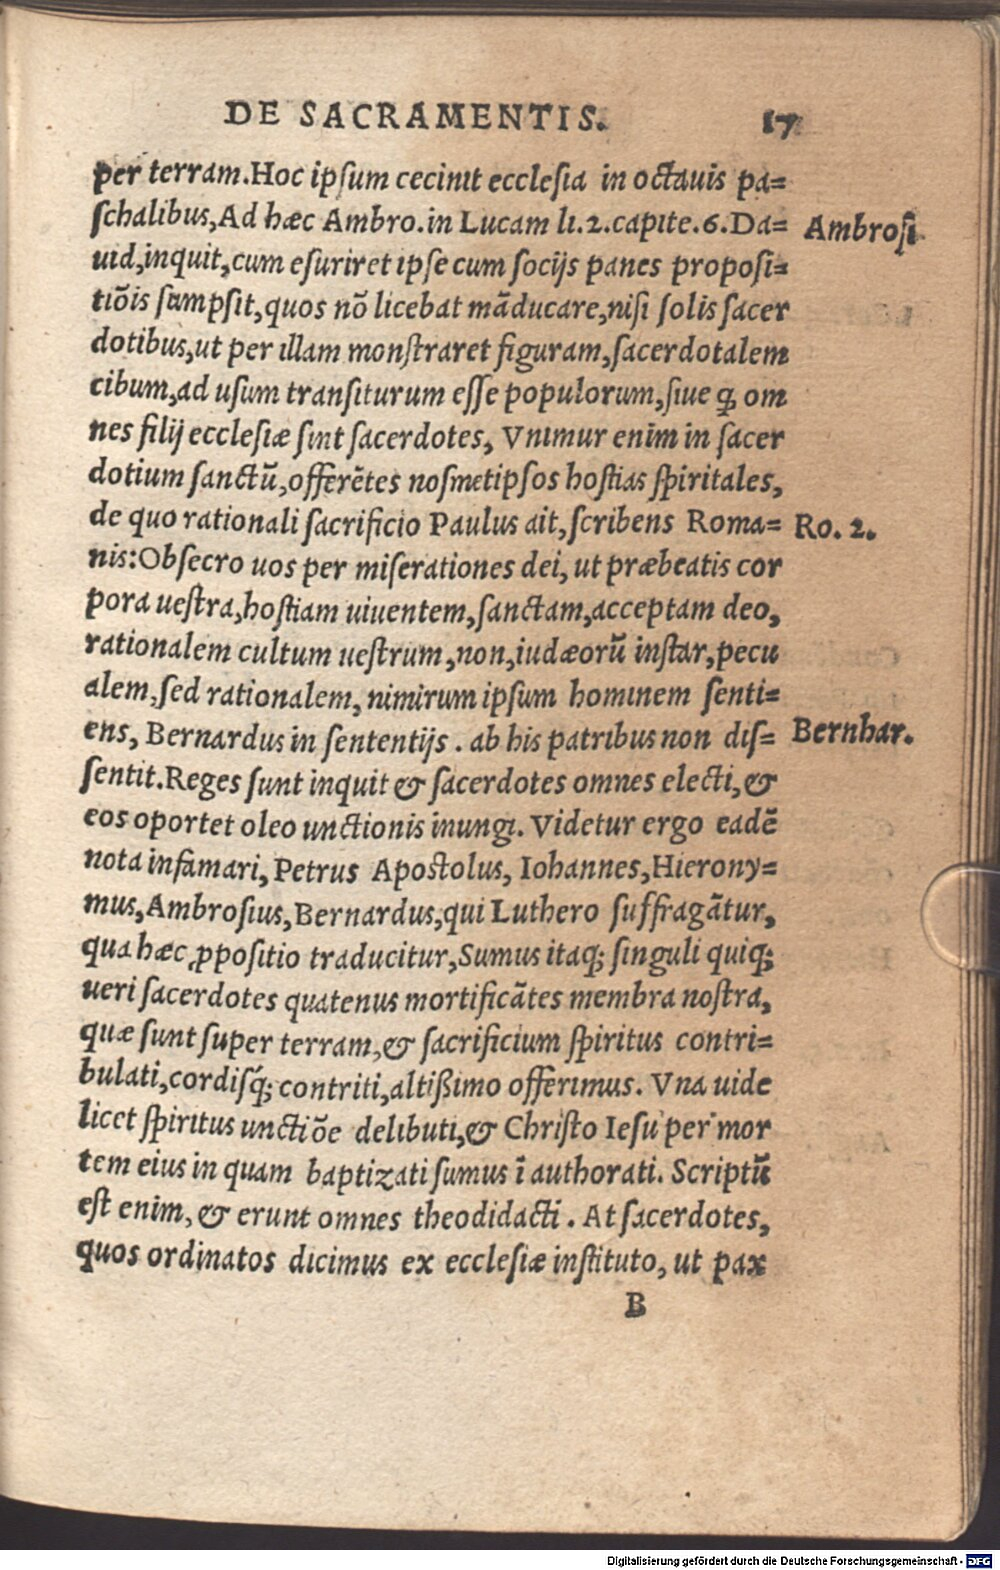 DE SACRAMENTIS. 17
per terram. Hoc ipsum cecinit ecclesia in octauis pa=
schalibus, Ad hæc Ambro. in Lucam li. 2. capite. 6. Da= Ambrosi
uid, inquit, cum esuriret ipse cum socijs panes proposi=
tiōis sumpsit, quos nō licebat māducare, nisi solis sacer
dotibus, ut per illam monstraret figuram, sacerdotalem
cibum, ad usum transiturum esse populorum, siue ꝗ om
nes filij ecclesiæ sint sacerdotes, Vnimur enim in sacer
dotium sanctū, offerētes nosmetipsos hostias spiritales,
de quo rationali sacrificio Paulus ait, scribens Roma= Ro. 2.
nis: Obsecro uos per miserationes dei, ut præbeatis cor
pora uestra, hostiam uiuentem, sanctam, acceptam deo,
rationalem cultum uestrum, non, iudæorū instar, pecu
alem, sed rationalem, nimirum ipsum hominem senti=
ens, Bernardus in sententijs. ab his patribus non dis= Bernhar.
sentit. Reges sunt inquit & sacerdotes omnes electi, &
eos oportet oleo unctionis inungi. Videtur ergo eadē
nota infamari, Petrus Apostolus, Iohannes, Hierony=
mus, Ambrosius, Bernardus, qui Luthero suffragātur,
qua hæc ꝓpositio traducitur, Sumus itaq; singuli quiq;
ueri sacerdotes quatenus mortificātes membra nostra,
quæ sunt super terram, & sacrificium spiritus contri=
bulati, cordisq́; contriti, altißimo offerimus. Vna uide
licet spiritus unctiōe delibuti, & Christo Iesu per mor
tem eius in quam baptizati sumus ī authorati. Scriptū
est enim, & erunt omnes theodidacti. At sacerdotes,
quos ordinatos dicimus ex ecclesiæ instituto, ut pax
B
Digitalisierung gefördert durch die Deutsche Forschungsgemeinschaft - DFG